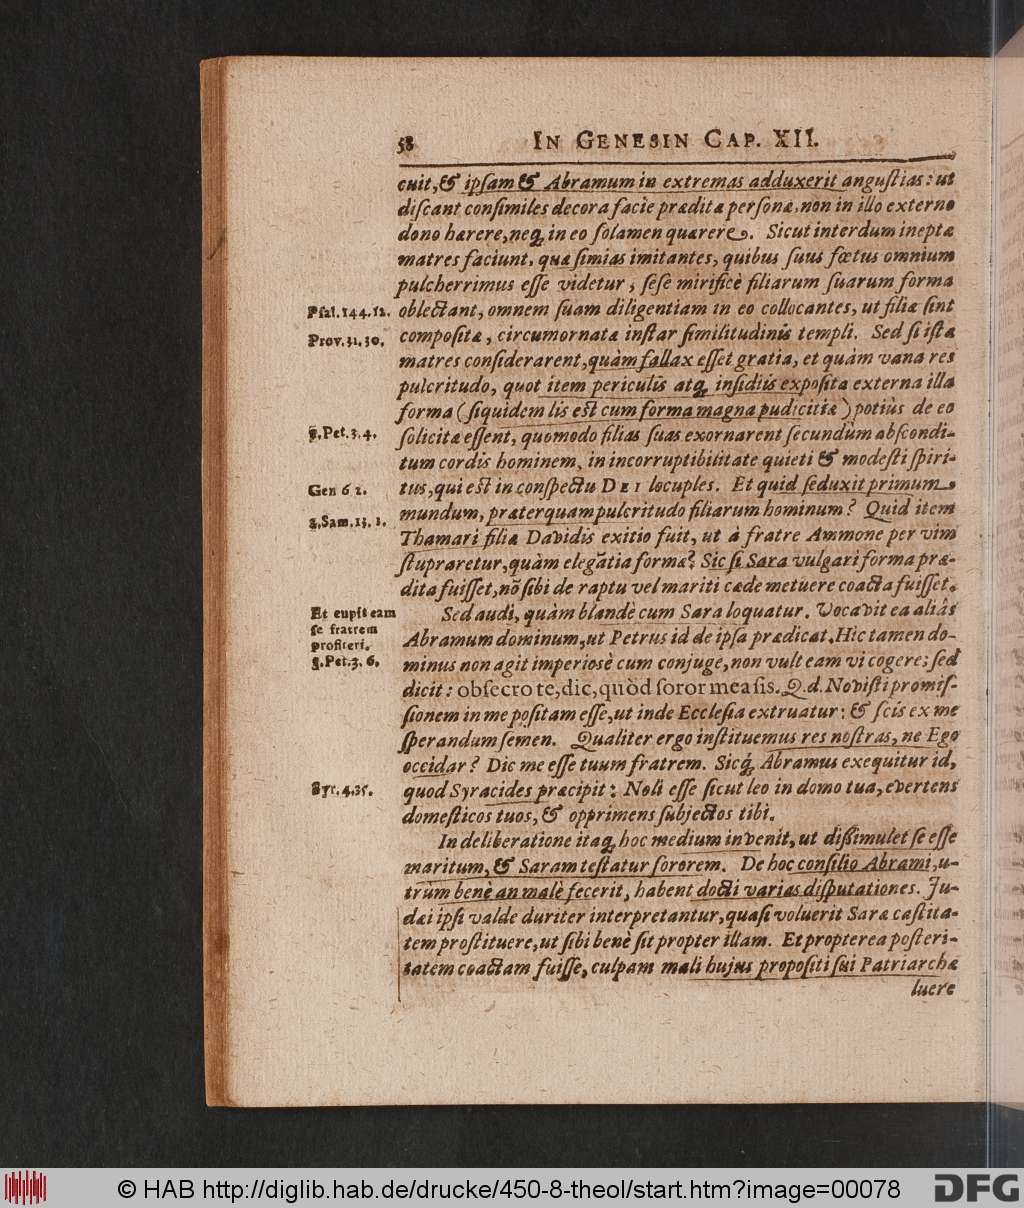 58 IN GENESIN CAP. XII.
cuit, & ipsam & Abramum in extremas adduxerit angustias: ut
discant consimiles decora facie præditæ personæ, non in illo externo
dono hærere, neq; in eo solamen quærere. Sicut interdum ineptæ
matres faciunt, quæ simias imitantes, quibus suus fœtus omnium
pulcherrimus esse videtur, sese mirificè filiarum suarum forma
Psal. 144. 12. oblectant, omnem suam diligentiam in eo collocantes, ut filiæ sint
Prov. 31. 30. compositæ, circumornatæ instar similitudinis templi. Sed si istæ
matres considerarent, quàm fallax esset gratia, et quàm vana res
pulcritudo, quot item periculis atq; insidiis exposita externa illa
forma (siquidem lis est cum forma magna pudicitiæ) potiùs de eo
1. Pet. 3. 4. solicitæ essent, quomodo filias suas exornarent secundùm abscondi-
tum cordis hominem, in incorruptibilitate quieti & modesti spiri-
Gen 6 2. tus, qui est in conspectu DEI locuples. Et quid seduxit primum
2. Sam. 13. 1. mundum, præterquam pulcritudo filiarum hominum? Quid item
Thamari filiæ Davidis exitio fuit, ut à fratre Ammone per vim
stupraretur, quàm elegãtia formæ? Sic si Sara vulgari forma præ-
dita fuisset, nõ sibi de raptu vel mariti cæde metuere coacta fuisset.
Et cupit eam
se fratrem
profiteri.
1. Pet. 3. 6.
Sed audi, quàm blandè cum Sara loquatur. Vocavit ea aliâs
Abramum dominum, ut Petrus id de ipsa prædicat. Hic tamen do-
minus non agit imperiosè cum conjuge, non vult eam vi cogere; sed
dicit: obsecro te, dic, quòd soror mea sis. Q. d. Novisti promis-
sionem in me positam esse, ut inde Ecclesia extruatur: & scis ex me
sperandum semen. Qualiter ergo instituemus res nostras, ne Ego
occidar? Dic me esse tuum fratrem. Sicq; Abramus exequitur id,
Syr. 4. 35. quod Syracides præcipit: Noli esse sicut leo in domo tua, evertens
domesticos tuos, & opprimens subjectos tibi.
In deliberatione itaq; hoc medium invenit, ut dissimulet se esse
maritum, & Saram testatur sororem. De hoc consilio Abrami, u-
trùm benè an malè fecerit, habent docti varias disputationes. Ju-
dæi ipsi valde duriter interpretantur, quasi voluerit Saræ castita-
tem prostituere, ut sibi benè sit propter illam. Et propterea posteri-
tatem coactam fuisse, culpam mali hujus propositi sui Patriarchæ
luere
© HAB http://diglib.hab.de/drucke/450-8-theol/start.htm?image=00078
DFG